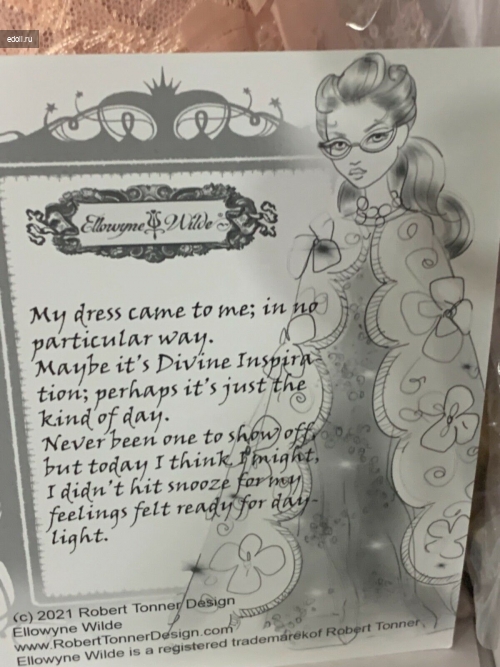 edoll.ru
Ellowyne Wilde
My dress came to me; in no
particular way.
Maybe it's Divine Inspira-
tion; perhaps it's just the
kind of day.
Never been one to show off,
but today I think I might,
I didn't hit snooze for my
feelings felt ready for day-
light.
(c) 2021 Robert Tonner Design
Ellowyne Wilde
www.RobertTonnerDesign.com
Ellowyne Wilde is a registered trademarekof Robert Tonner